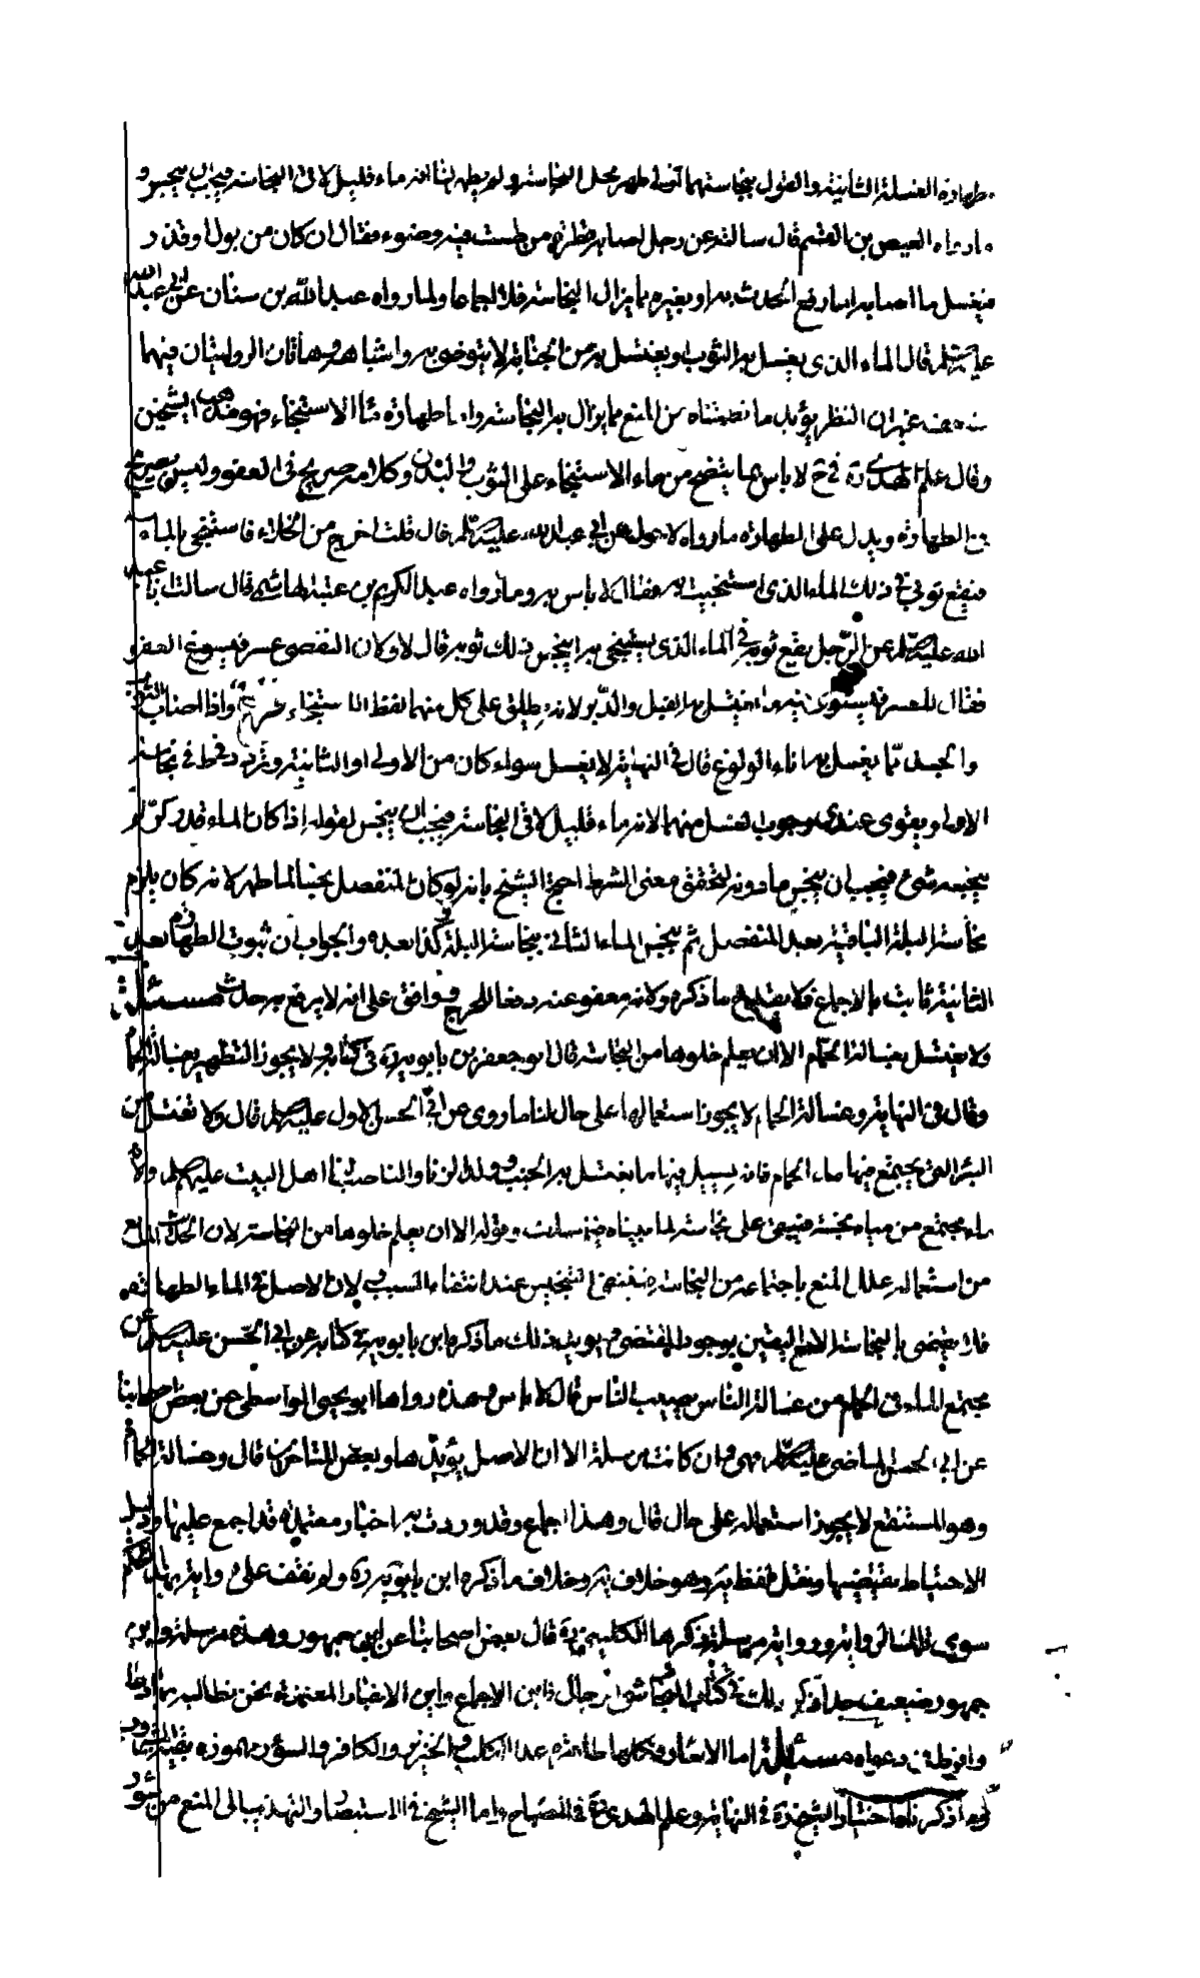 طهارة الغسلة الثانية والقول بنجاستهما وان طهر محل النجاسة ولم يظهر لنا انه ماء قليل لاقى النجاسة فيجب ان ينجس و
ما رواه العيص بن القسم قال سالته عن رجل اصابه قطرة من طست فيه وضوء فقال ان كان من بول او قذر
فيغسل ما اصابه اما رفع الحدث به او بغيره مما يزال النجاسة فلا اجماعا ولما رواه عبد الله بن سنان عن ابي عبد الله
عليه السلم قال الماء الذي يغسل به الثوب او يغتسل به من الجنابة لا يتوضو به واشباهه وهاتان الروايتان فيهما
ضعف غير ان النظر يؤيد ما تضمنتاه من المنع مما يزال به النجاسة واما طهارة ماء الاستنجاء فهو مذهب الشيخين
وقال علم الهدى ره في ح لا باس بما ينضح من ماء الاستنجاء على الثوب والبدن وكلامه صريح في العفو وليس بصريح
في الطهارة ويدل على الطهارة ما رواه الاحول عن ابي عبد الله عليه السلم قال قلت اخرج من الخلاء فاستنجي بالماء
فيقع ثوبي في ذلك الماء الذي استنجيت به فقال لا باس به وما رواه عبد الكريم بن عتبة الهاشمي قال سالت ابا عبد
الله عليه السلم عن الرجل يقع ثوبه في الماء الذي يستنجي به اينجس ذلك ثوبه قال لا وكان التفصي عسر فيسوغ العفو
فقال للعسر فيستوي فيه ما يغتسل به القبل والدبر لانه يطلق على كل منهما لفظ الاستنجاء واذا اصاب الثوب
والجسد مما يغسل به اناء الولوغ قال في النهاية لا يغسل سواء كان من الاولى او الثانية وتردد في ط في نجاسة
الاولى ويقوى عندي وجوب الغسل منهما لانه ماء قليل لاقى النجاسة فيجب ان ينجس لقوله اذا كان الماء قدر كر لم
ينجسه شئ فيجب ان ينجس ما دونه لتحقق معنى الشرط احتج الشيخ بانه لو كان المنفصل نجسا لما طهر لانه كان يلزم
نجاسة البلة الباقية بعد المنفصل ثم ينجس الماء الثاني بنجاسة البلة وكذا بعده والجواب ان ثبوت الطهارة بعد
الثانية ثابت بالاجماع فلا يقدح ما ذكره ولانه معفو عنه دفعا للحرج ووافق على انه لا يرفع به حدث مسئلة
ولا يغتسل بغسالة الحمام الا ان يعلم خلوها من النجاسة قال ابو جعفر بن بابويه ره في كتابه ولا يجوز التطهير بغسالة الحمام
وقال في النهاية وغسالة الحمام لا يجوز استعمالها على حال لنا ما روى عن ابي الحسن الاول عليه السلم قال ولا تغتسل من
البئر التي يجتمع فيها ماء الحمام فانه يسيل فيها ما يغتسل به الجنب وولد الزنا والناصب لنا اهل البيت عليهم السلم ولانه
ماء مجتمع من مياه نجسة فيبقى على نجاسته لما بيناه فيما سلف وقوله الا ان يعلم خلوها من النجاسة لان الحديث المانع
من استعماله علل المنع باجتماعه من النجاسة فينتفي التنجيس عند انتفاء السبب و لان الاصل في الماء الطهارة
فلا يقضى بالنجاسة الا مع اليقين بوجود المقتضي ويؤيد ذلك ما ذكره ابن بابويه في كتابه عن ابي الحسن عليه السلم عن
مجتمع الماء في الحمام من غسالة الناس يصيب الناس قال لا باس وهذه رواها ابو يحيى الواسطي عن بعض اصحابنا
عن ابي الحسن الماضي عليه السلم فهي وان كانت مرسلة الا ان الاصل يؤيدها وبعض المتاخرين قال وغسالة الحمام
وهو المستنقع لا يجوز استعماله على حال قال وهذا اجماع وقد وردت به اخبار معتمدة قد اجمع عليها ودليل
الاحتياط يقتضيها ونقل لفظ يه وهو خلاف يه وخلاف ما ذكره ابن بابويه ره ولم نقف على رواية بهذا الحكم
سوى تلك الرواية ورواية مرسلة ذكرها الكليني ره قال بعض اصحابنا عن ابن جمهور وهذه مرسلة وابن
جمهور ضعيف جدا ذكر ذلك في كتاب الرجال فاين الاجماع واين الاخبار المعتمدة نحن نطالبه بما ادعاه
وافرط في دعواه مسئلة اما الاسئار فكلها طاهرة عدا الكلب والخنزير والكافر والسؤر مهموزة بقية المشروب
وما ذكرناه اختيار الشيخ ره في النهاية وعلم الهدى ره في المصباح واما الشيخ في الاستبصار والتهذيب الى المنع من سؤر